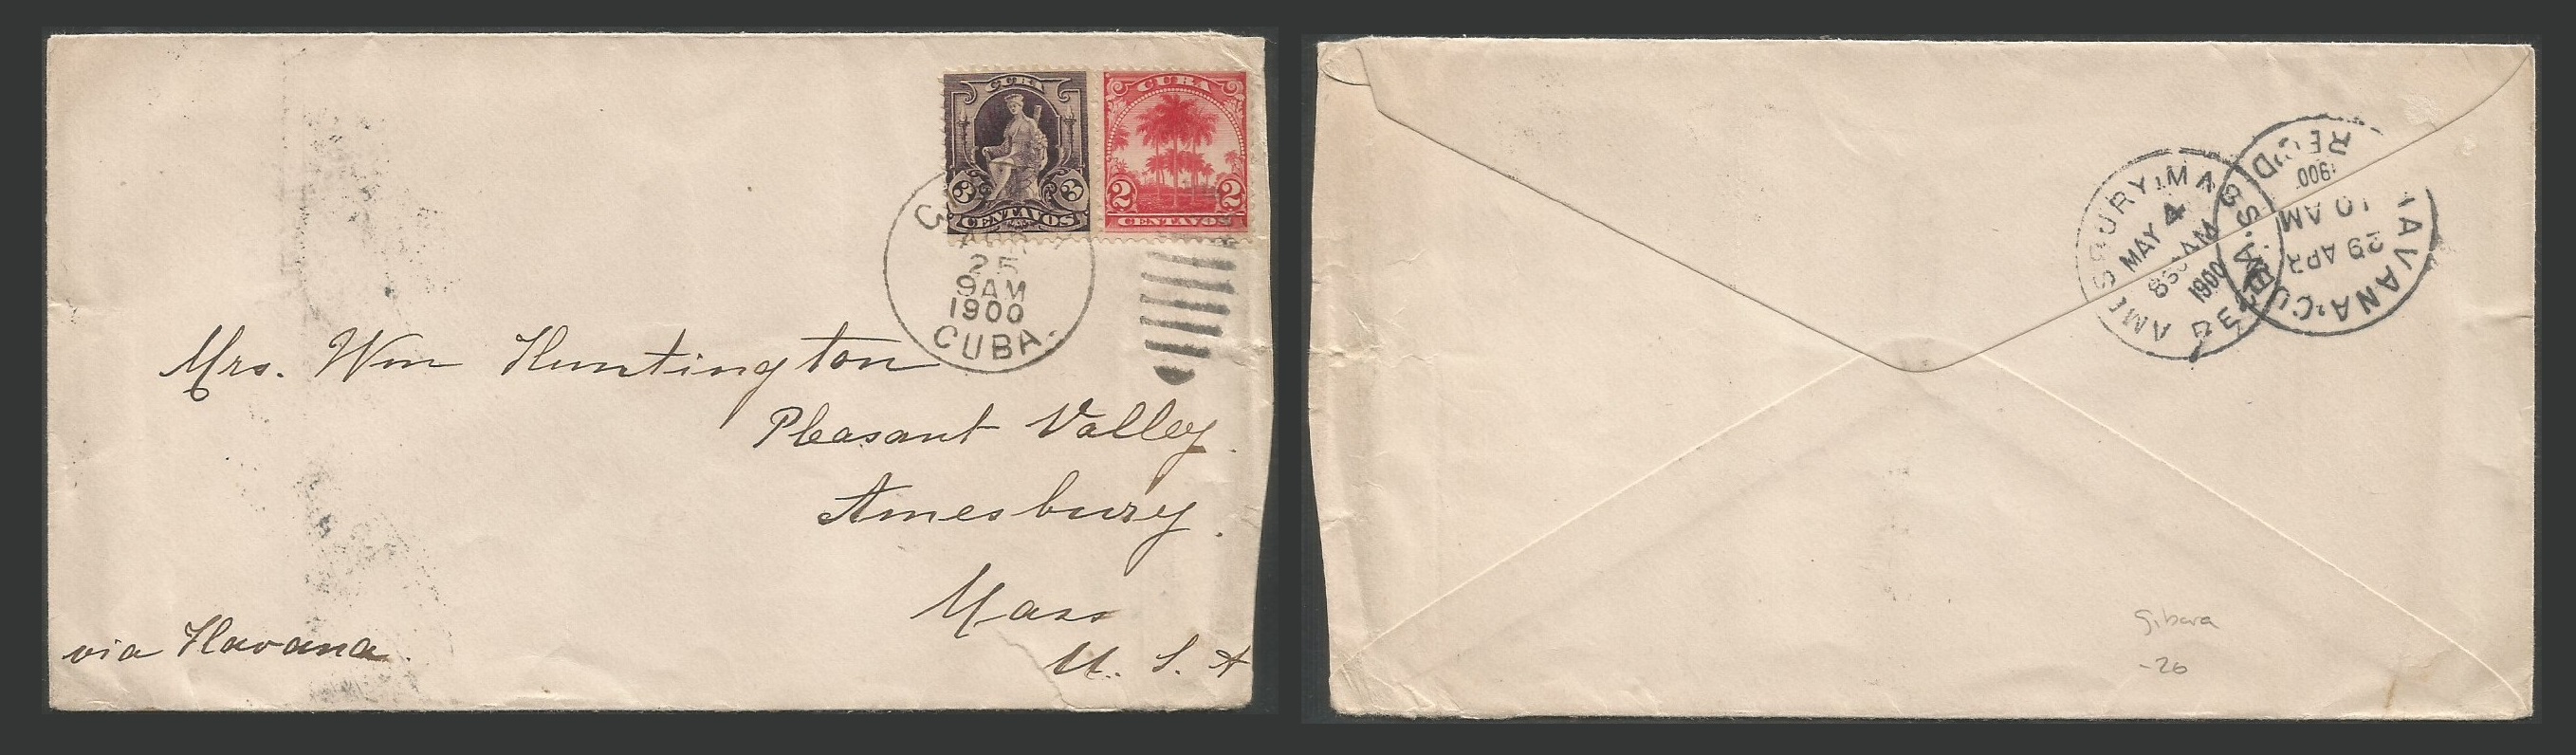 CUBA
3 3
CENTAVOS
CUBA
2 2
CENTAVOS
25
9AM
1900
CUBA.
Mrs. Wm Huntington
Pleasant Valley.
Amesbury.
Mass
U. S. A
via Havana.
AMESBURY, MASS.
MAY 4
1900
REC'D
HAVANA, CUBA.
29 APR
10 AM
1900
REC'D
Gibara
-20